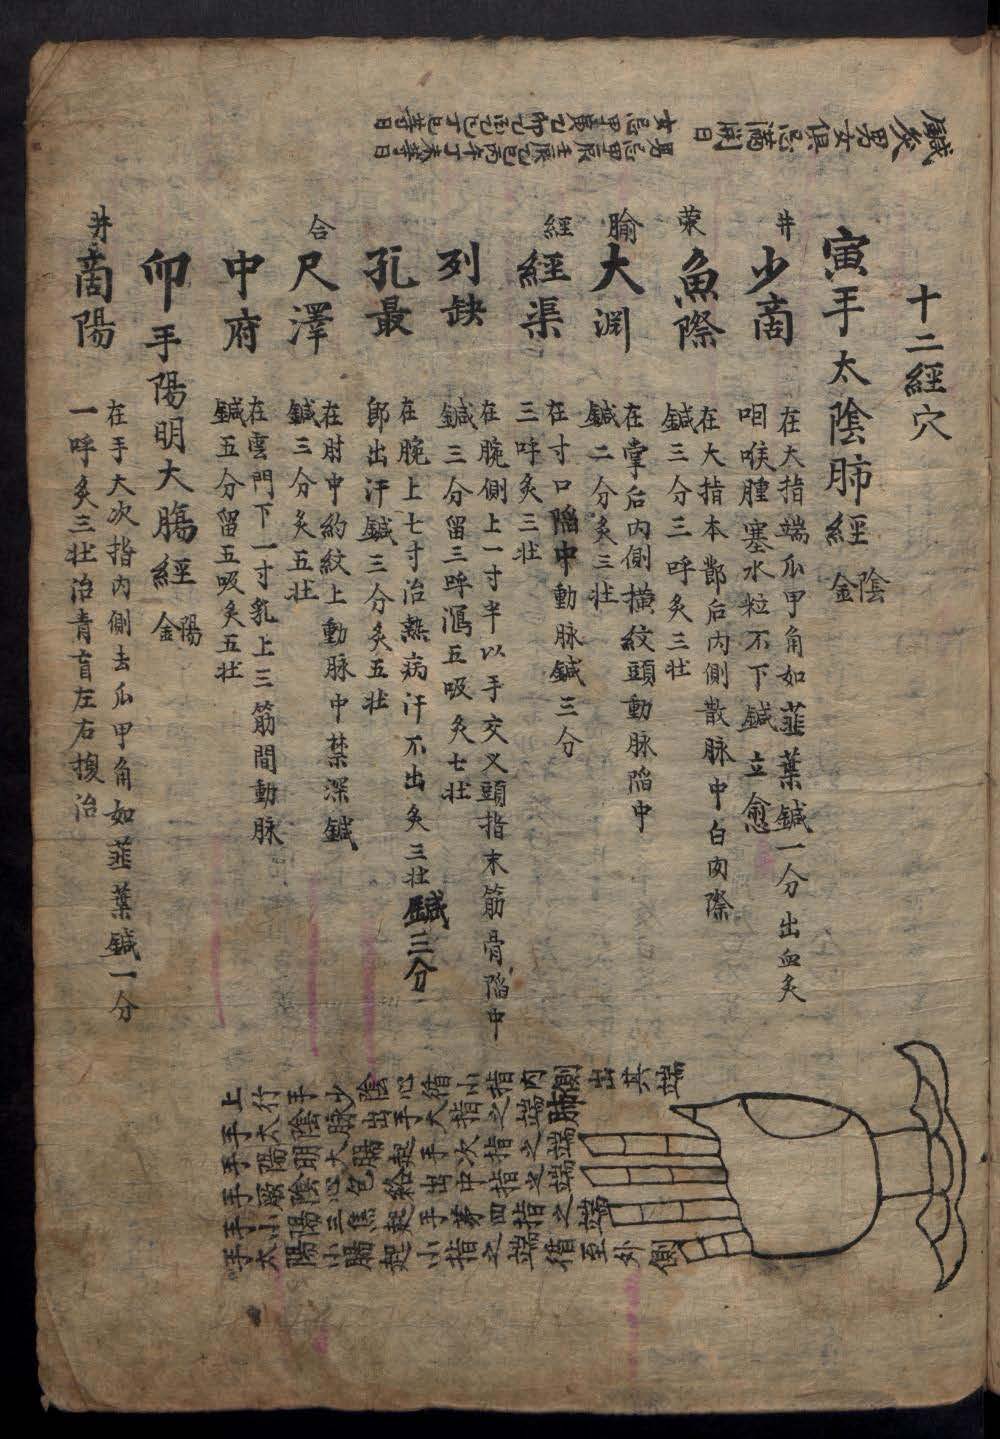 鍼灸男女俱忌滿開日
男忌甲辰壬辰乙巳丙午丁未等日
女忌甲寅乙卯乙酉乙巳丁巳等日
十二經穴
寅手太陰肺經 陰金
井
少商
在大指端瓜甲角如韮葉鍼一分出血灸
咽喉腫塞水粒不下鍼立愈
荣
魚際
在大指本節后內側散脉中白肉際
鍼三分三呼灸三壮
腧
大淵
在掌后內側橫紋頭動脉陷中
鍼二分灸三壮
經
經渠
在寸口陷中動脉鍼三分
三呼灸三壮
列缺
在腕側上一寸半以手交叉頭指末筋骨陷中
鍼三分留三呼瀉五吸灸七壮
孔最
在腕上七寸治熱病汗不出灸三壮鍼三分
即出汗鍼三分灸五壮
合
尺澤
在肘中約紋上動脉中禁深鍼
鍼三分灸五壮
中府
在雲門下一寸乳上三筋間動脉
鍼五分留五吸灸五壮
卯手陽明大膓經 陽金
井
商陽
在手大次指內側去瓜甲角如韮葉鍼一分
一呼灸三壮治青盲左右換治
手少陰心循小指內側出其端
手太陰肺出手大指之端
手陽明大膓起手次指之端
手厥陰心包絡出手中指之端
手小陽三焦起手第四指之端
手太陽小膓起小指之端循至外側